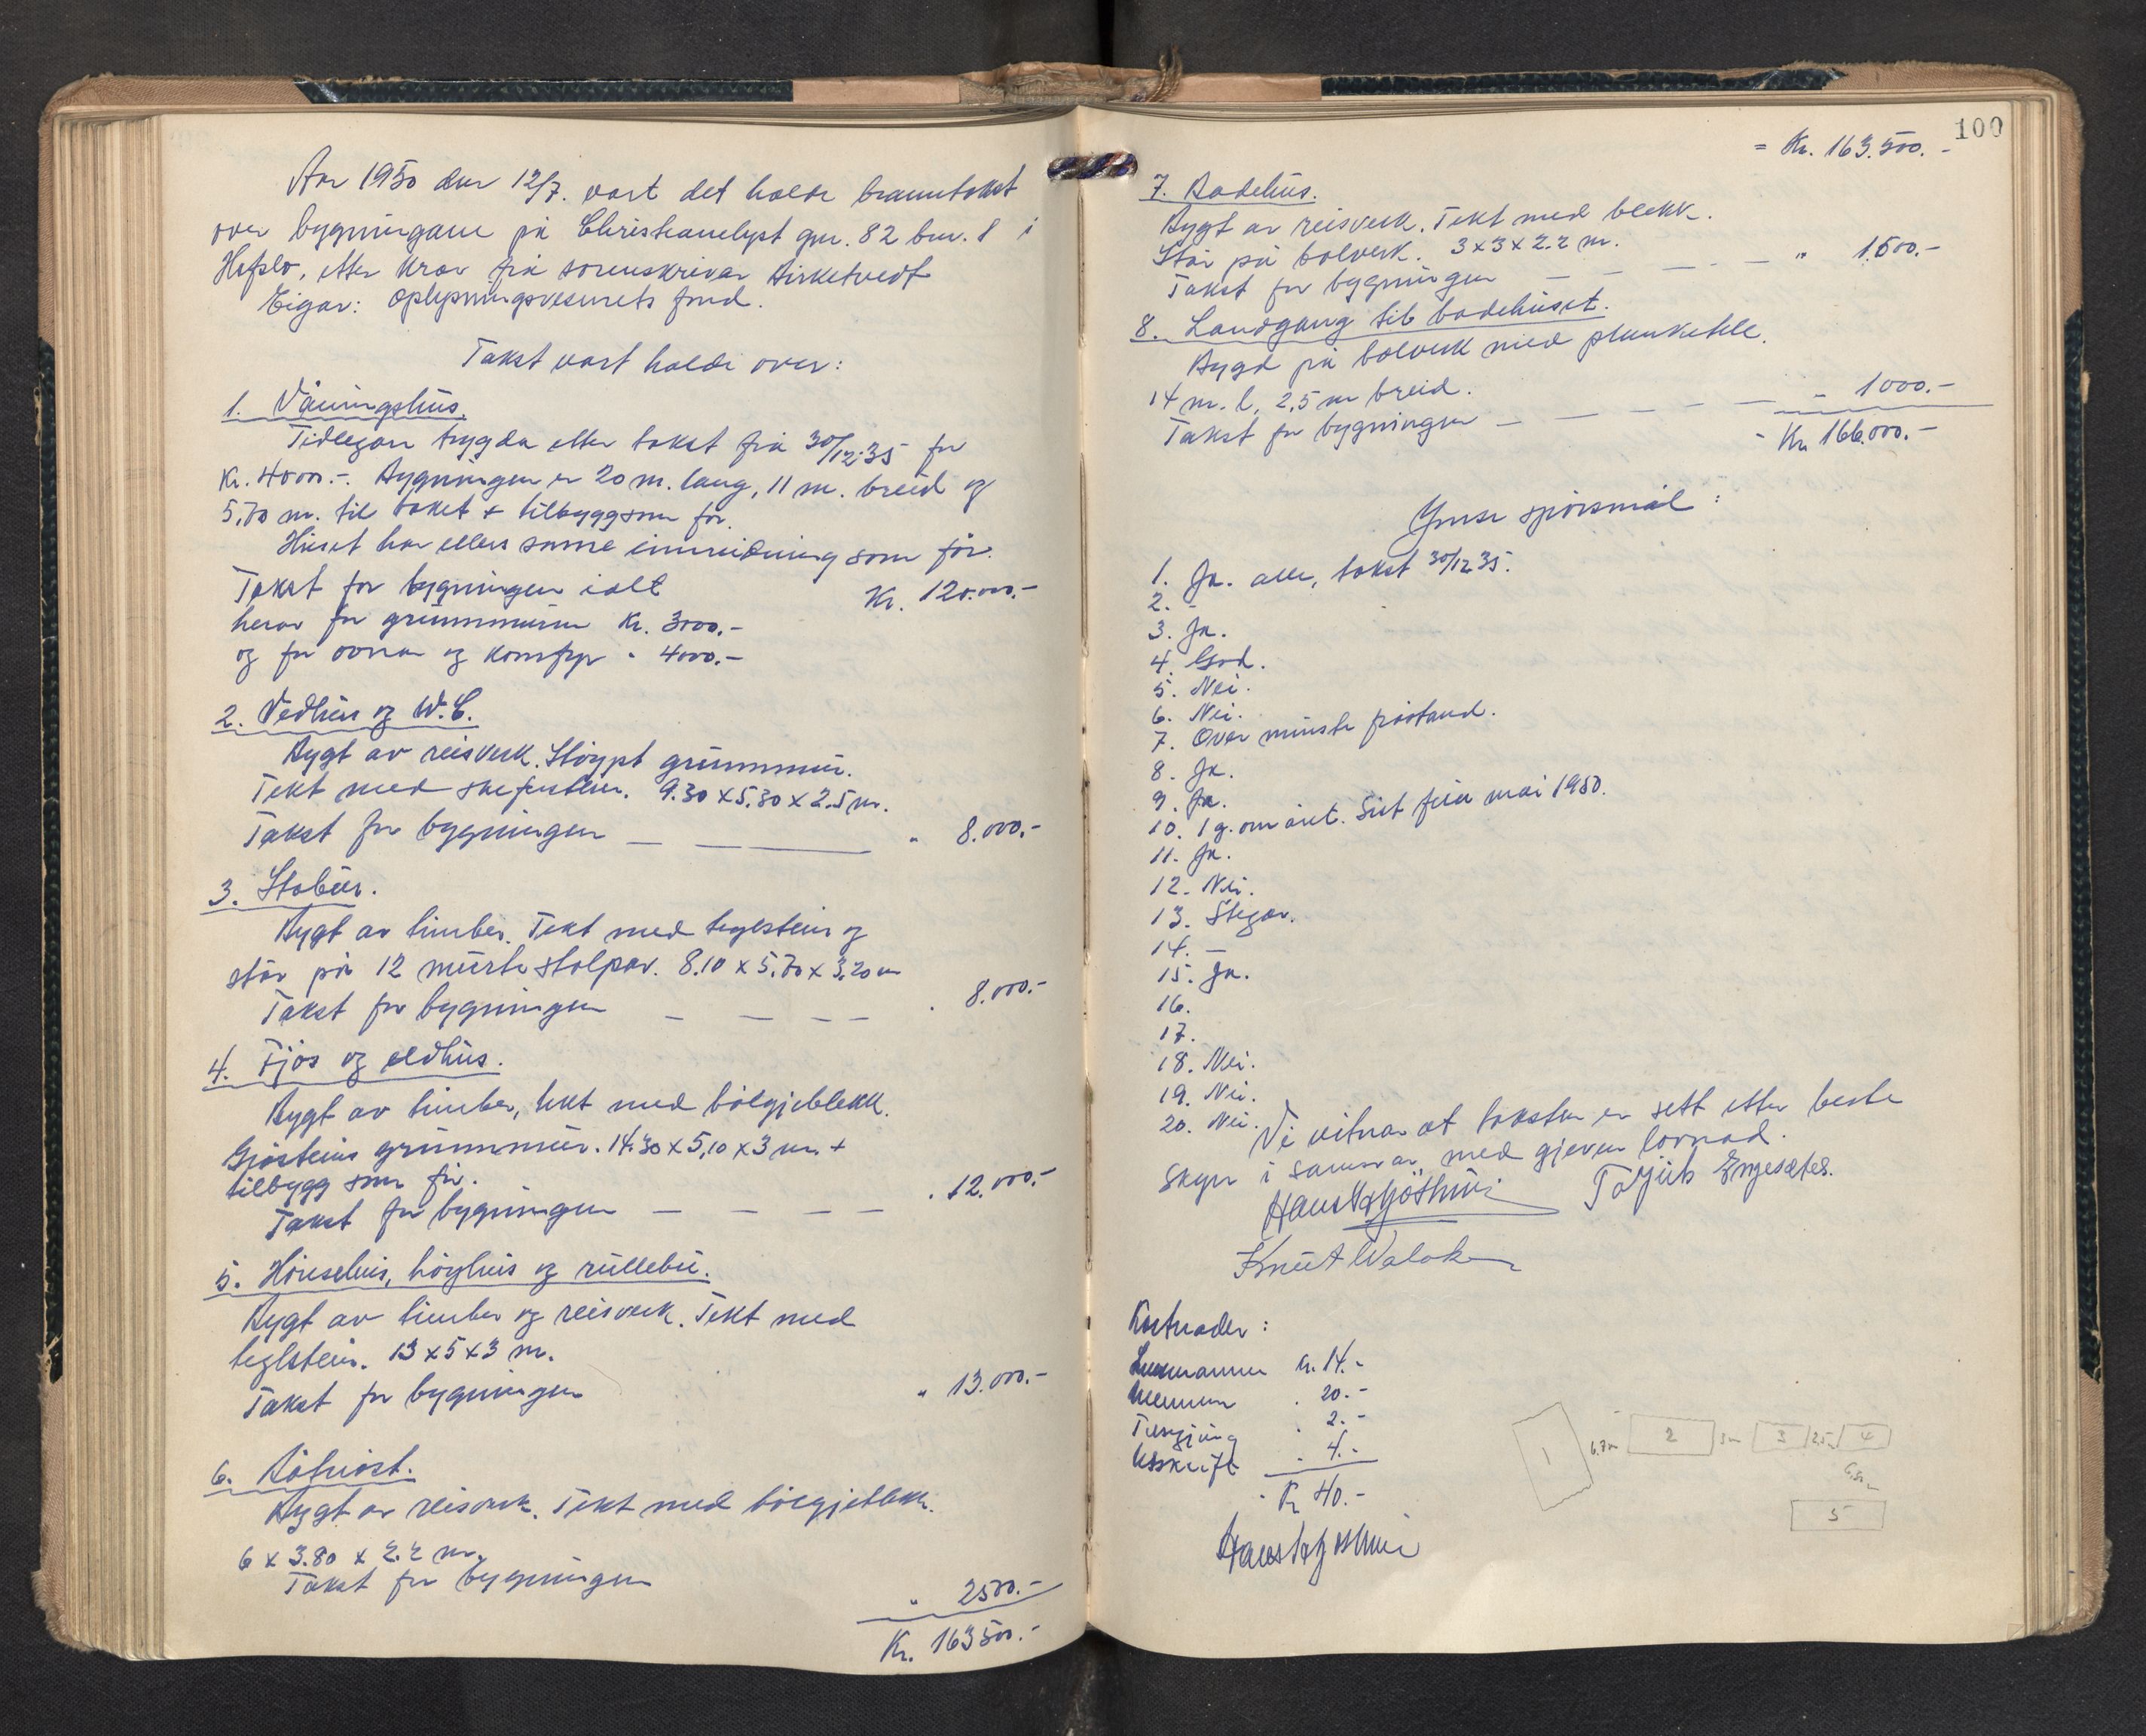 Aar 1950 den 12/7. vart det halde branntakst
over bygningane på Christianelyst gnr. 82 bnr. 8 i
Hafslo, etter krav frå sorenskrivar Birketvedt
Eigar: Oplysningsvesenets fond.
Takst vart halde over:
1. Våningshus.
Tidlegare trygda etter takst frå 30/12.35 for
Kr. 4000.-. Bygningen er 20 m. lang, 11 m. breid og
5,70 m. til taket + tilbygg som før.
Huset har ellers same innreidning som før.
Takst for bygningen ialt Kr. 120.000.-
herav for grunnmuren Kr. 3000.-
og for ovnar og komfyr " 4000.-
2. Vedhus og W.C.
Bygt av reisverk. Støypt grunnmur.
Tekt med skiferheller. 9.30 x 5.30 x 2.5 m.
Takst for bygningen — — " 8.000.-
3. Stabur.
Bygt av timber. Tekt med teglstein og
står på 12 murte stolpar. 8.10 x 5.70 x 3,20 m
Takst for bygningen — — — — " 8.000.-
4. Fjøs og eldhus.
Bygt av timber, tekt med bølgjeblekk.
Gråsteins grunnmur. 14.30 x 5,10 x 3 m. +
tilbygg som før.
Takst for bygningen — — — — " 12.000.-
5. Hønsehus, høyhus og rullebu.
Bygt av timber og reisverk. Tekt med
teglstein. 13 x 5 x 3 m.
Takst for bygningen " 13.000.-
6. Båtnaust.
Bygt av reisverk. Tekt med bølgjeblekk.
6 x 3.80 x 2.2 m.
Takst for bygningen
" 2500.-
Kr. 163500.-
100
= Kr. 163.500.-
7. Badehus.
Bygt av reisverk. Tekt med blekk.
Står på bolverk. 3x3x2.2 m.
Takst for bygningen — — — — — " 1.500.-
8. Landgang til badehuset.
Bygd på bolverk med plankehell.
14 m. l. 2,5 m breid.
Takst for bygningen — — — — — " 1000.-
- Kr 166.000.-
Ymse spørsmål:
1. Ja. alle, takst 30/12 35.
2. -
3. Ja.
4. God.
5. Nei.
6. Nei.
7. Over minste fråstand.
8. Ja.
9. Ja.
10. 1 g. om året. Sist feia mai 1950.
11. Ja.
12. Nei.
13. Stegar.
14. —
15. Ja.
16.
17.
18. Nei.
19. Nei.
20. Nei.
Vi vitnar at taksten er sett etter beste
skyn i samsvar med gjeven lovnad.
Knut Walaker
Kostnader:
Lensmannen kr. 14.-
Mennene " 20.-
Tinglysing " 2.-
Utskrift " 4.-
Kr 40.-
1 6,7m 2 3m 3 2,5m 4
5